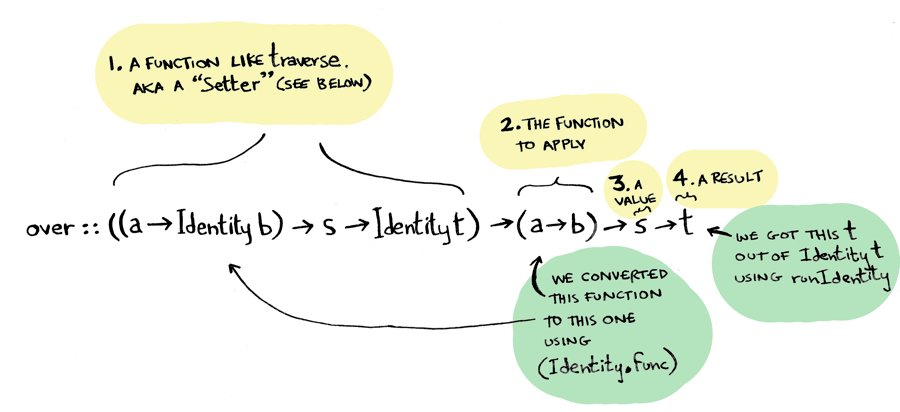 1. A FUNCTION LIKE traverse.
AKA A "Setter" (SEE BELOW)
2. THE FUNCTION
TO APPLY
3. A
VALUE
4. A RESULT
over :: ((a → Identity b) → s → Identity t) → (a → b) → s → t
WE GOT THIS t
OUT OF Identity t
USING runIdentity
WE CONVERTED
THIS FUNCTION
TO THIS ONE
USING
(Identity.func)